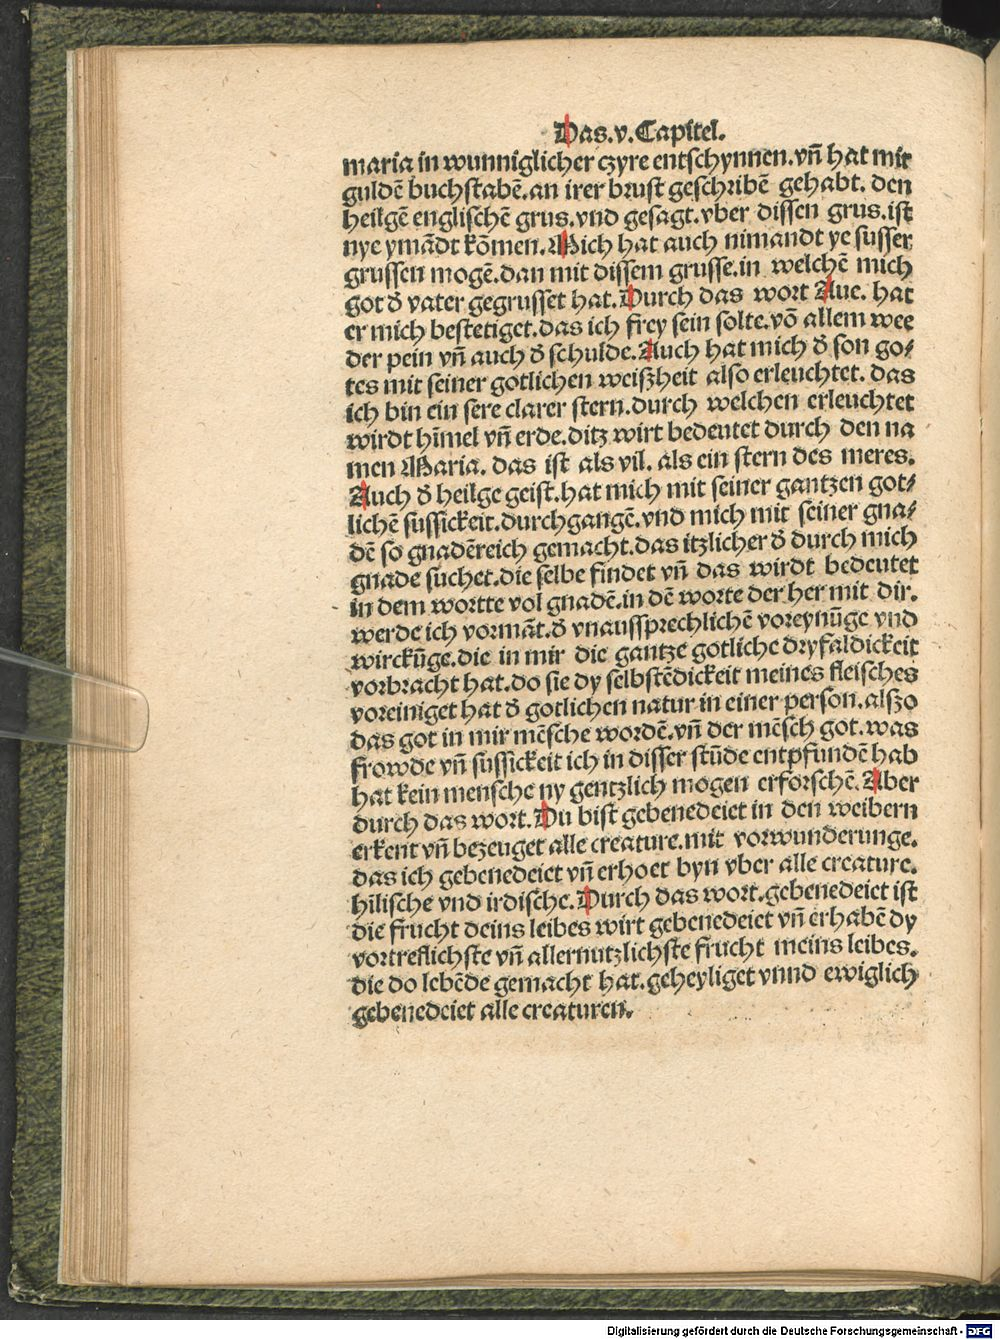 Das.v.Capitel.
maria in wunniglicher czyre entschynnen.vñ hat mit
guldē buchstabē.an irer brust geschribē gehabt. den
heilgē englischē grus.vnd gesagt.vber dissen grus.ist
nye ymādt kōmen.Mich hat auch nimandt ye susser
grussen mogē.dan mit dissem grusse.in welchē mich
got d̄ vater gegrusset hat.Durch das wort Aue. hat
er mich bestetiget.das ich frey sein solte.vō allem wee
der pein vñ auch d̄ schulde.Auch hat mich d̄ son go⸗
tes mit seiner gotlichen weißheit also erleuchtet. das
ich bin ein sere clarer stern.durch welchen erleuchtet
wirdt hīmel vñ erde.ditz wirt bedeutet durch den na
men Maria. das ist als vil. als ein stern des meres.
Auch d̄ heilge geist.hat mich mit seiner gantzen got⸗
lichē sussickeit.durchgangē.vnd mich mit seiner gna⸗
dē so gnadēreich gemacht.das itzlicher d̄ durch mich
gnade suchet.die selbe findet vñ das wirdt bedeutet
in dem wortte vol gnadē.in dē worte der her mit dir.
werde ich vormāt.d̄ vnaussprechlichē voreynūge vnd
wirckūge.die in mir die gantze gotliche dryfaldickeit
vorbracht hat.do sie dy selbstēdickeit meines fleisches
voreiniget hat d̄ gotlichen natur in einer person.alszo
das got in mir mēsche wordē.vñ der mēsch got.was
frowde vñ sussickeit ich in disser stūde entpfundē hab
hat kein mensche ny gentzlich mogen erforschē.Aber
durch das wort.Du bist gebenedeiet in den weibern
erkent vñ bezeuget alle creature.mit vorwunderunge.
das ich gebenedeiet vñ erhoet byn vber alle creature.
hīlische vnd irdische.Durch das wort.gebenedeiet ist
die frucht deins leibes wirt gebenedeiet vñ erhabē dy
vortreflichste vñ allernutzlichste frucht meins leibes.
die do lebēde gemacht hat.geheyliget vnnd ewiglich
gebenedeiet alle creaturen.
Digitalisierung gefördert durch die Deutsche Forschungsgemeinschaft - DFG